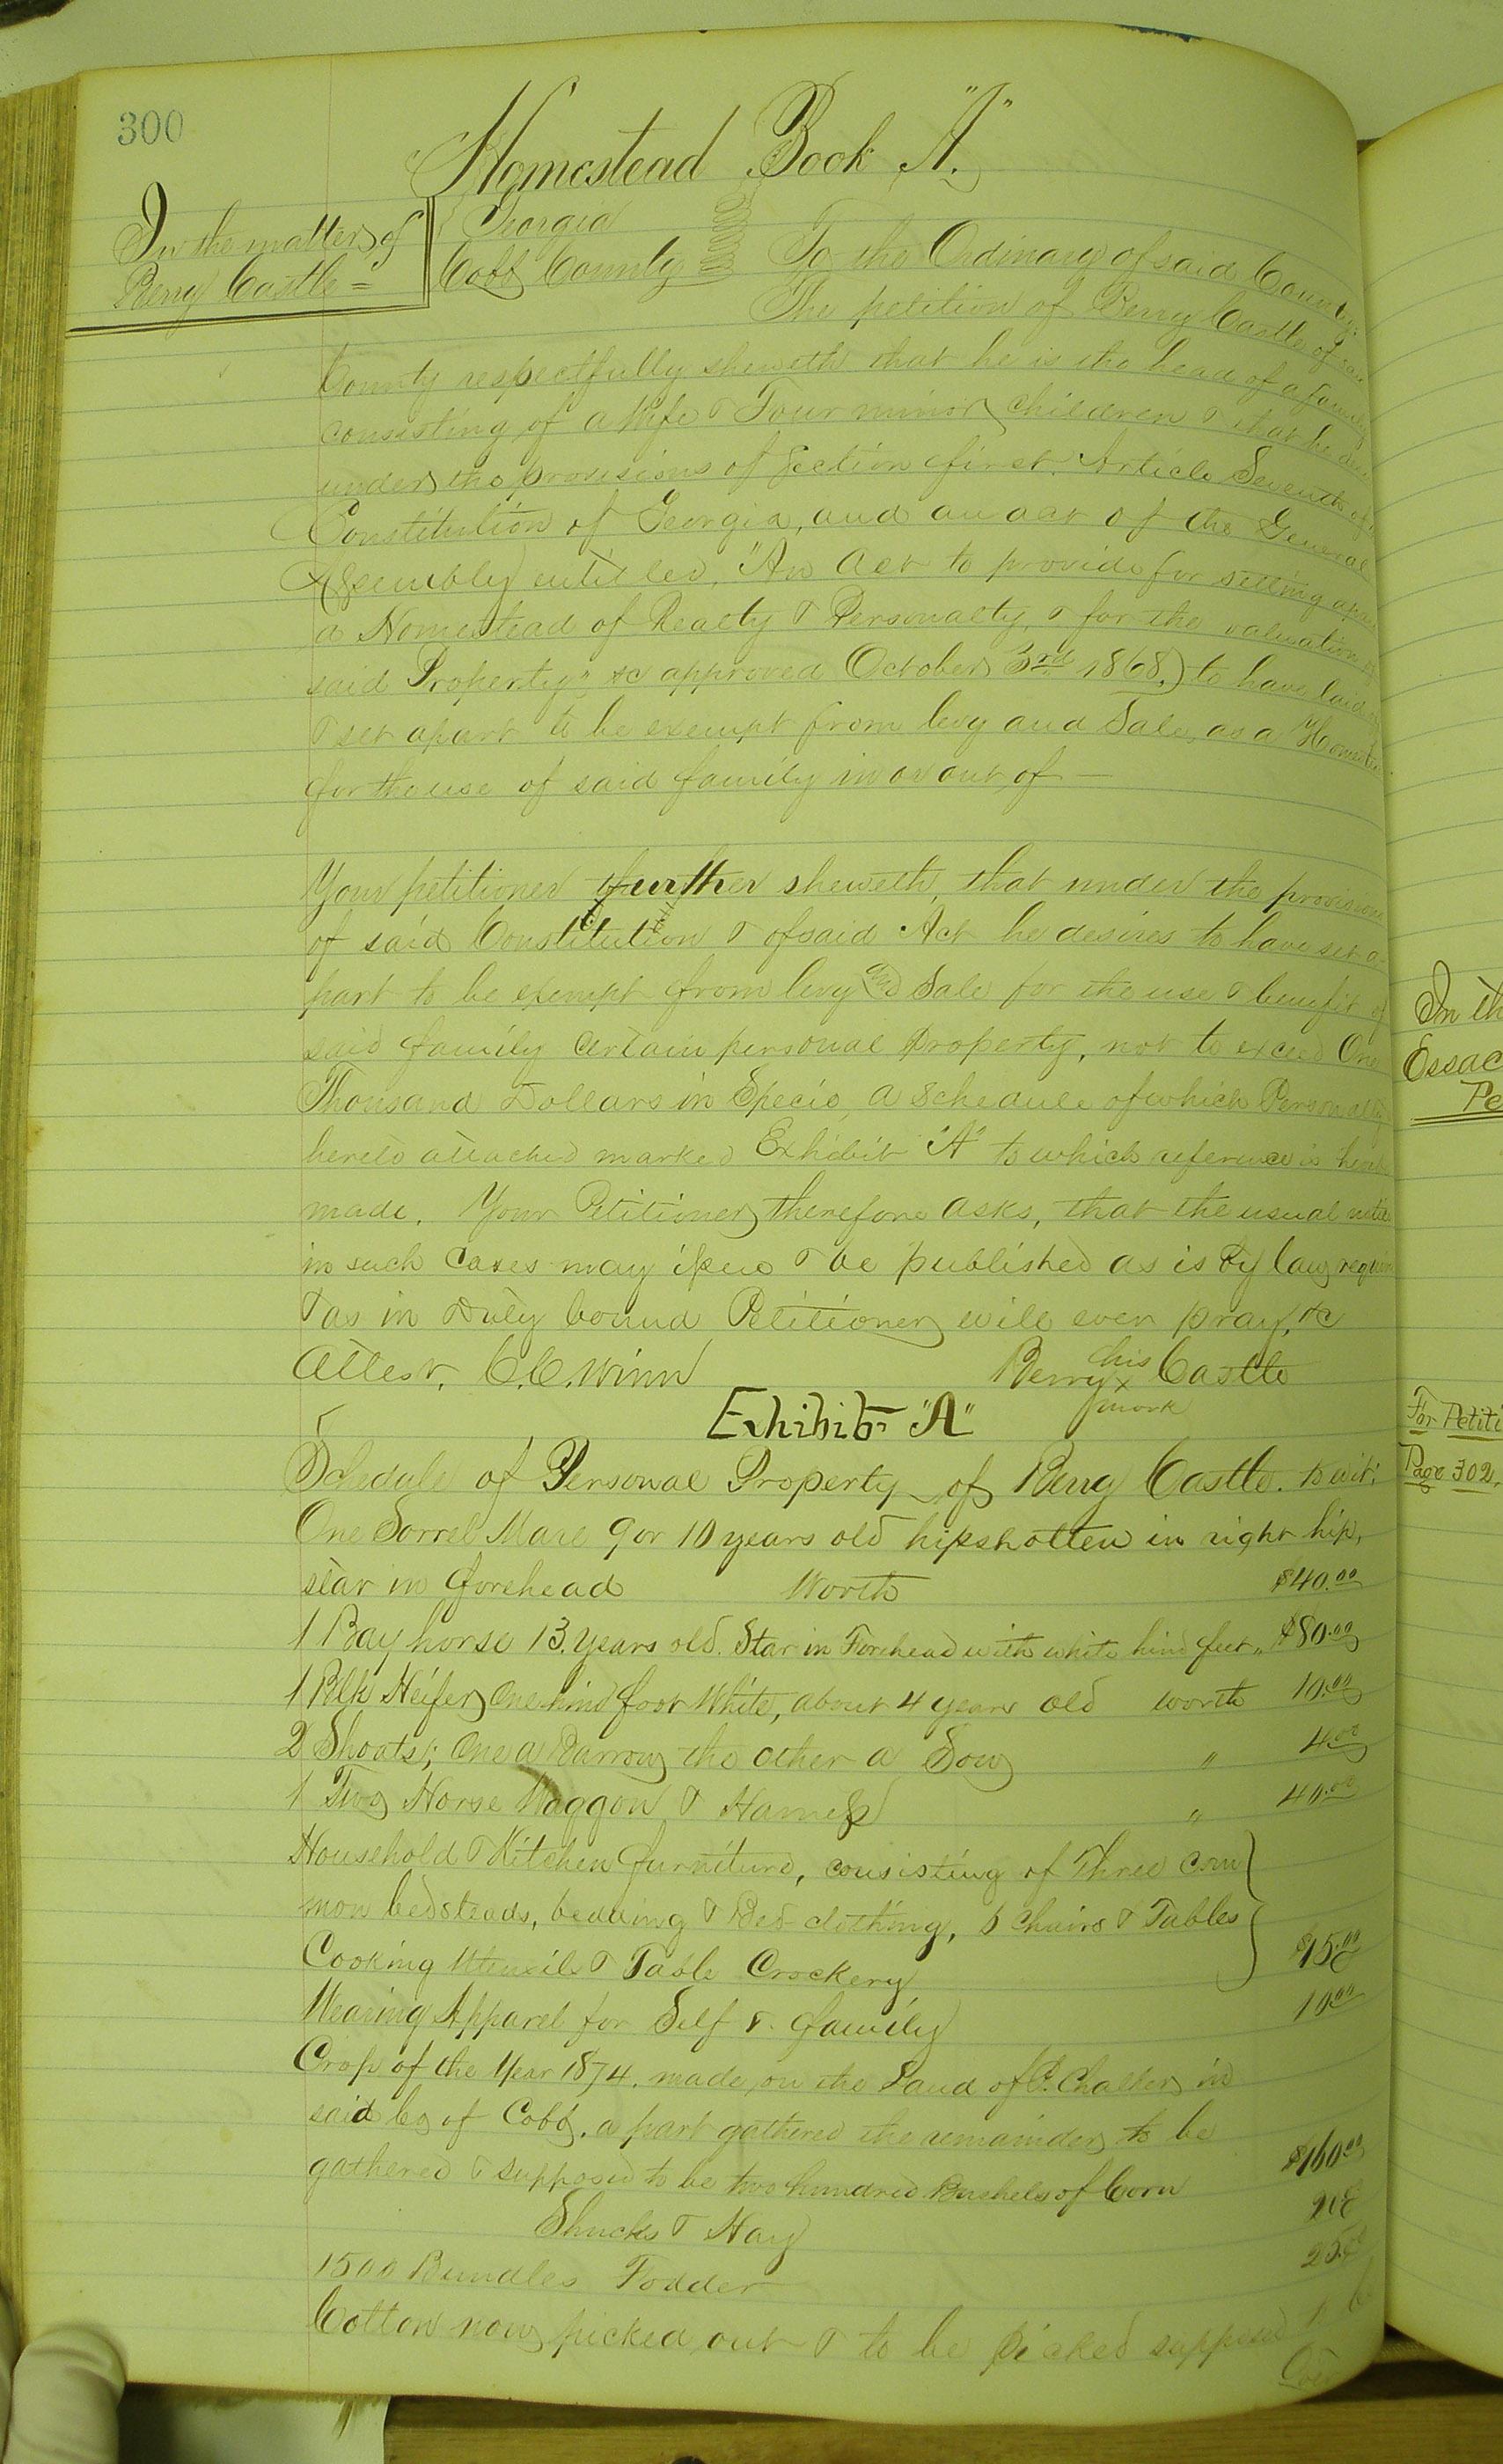 300
Homestead Book "A."
In the matter of
Berry Castle =
Georgia
Cobb County
To the Ordinary of said County:
The petition of Berry Castle of said
County respectfully sheweth that he is the head of a family
consisting of a Wife & Four minor children & that he
under the provisions of Section first Article Seventh of
Constitution of Georgia, and an act of the General
Assembly entitled, "An Act to provide for setting apart
a Homestead of Realty & Personalty, & for the valuation of
said Property", &c approved October 3rd 1868.) to have laid
& set apart to be exempt from levy and Sale, as a Homestead
for the use of said family in or out of —
Your petitioner further sheweth, that under the provisions
of said Constitution & of said Act he desires to have set a-
part to be exempt from levy and Sale for the use & benefit of
said family certain personal property, not to exceed One
Thousand Dollars in Specie, a Schedule of which Personalty
hereto attached marked Exhibit "A" to which reference is hereby
made. Your Petitioner therefore asks, that the usual notice
in such cases may issue & be published as is by law
& as in Duty bound Petitioner will ever pray, &c
Attest, C.C. Winn
Berry his x mark Castle
Exhibit "A"
Schedule of Personal Property of Berry Castle. to wit:
One Sorrel Mare 9 or 10 years old hipshotten in right hip,
star in forehead Worth $40.00
1 Bay horse 13. years old. Star in Forehead with white hind feet " $80.00
1 Blk Heifer One hind foot White, about 4 years old worth 10.00
2 Shoats; One a Barrow the other a Sow " 4.00
1 Two Horse Waggon & Harness " 40.00
Household & Kitchen furniture, consisting of Three com
mon bedsteads, bedding & Bed-clothing, 6 Chairs & Tables
Cooking Utensils & Table Crockery $15.00
Wearing Apparel for Self & family 10.00
Crop of the Year 1874. made on the Land of in
said Co of Cobb, a part gathered the remainder to be
gathered & supposed to be two hundred Bushels of Corn $160.00
Shucks & Hay
1500 Bundles Fodder
Cotton now picked out & to be picked supposed to be
In th
Essac
Pe
For Petiti
Page 302.